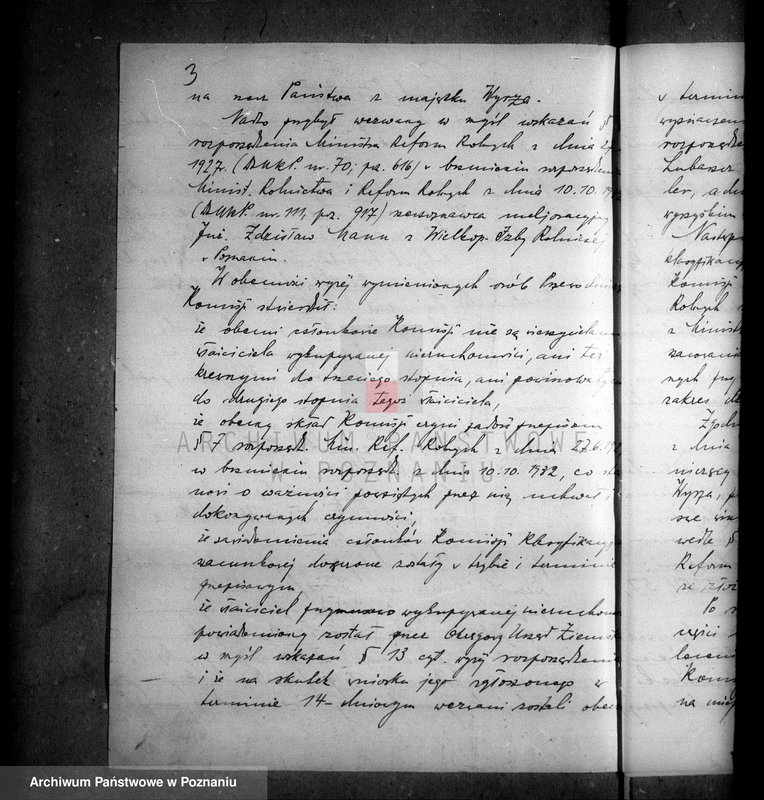 3
na rzecz Państwa z majątku Wyrza.
Nadto przybył wezwany w myśl wskazań §
rozporządzenia Ministra Reform Rolnych z dnia
1927r. (Dz.U.R.P. nr. 70, poz. 616) w brzmieniu rozporządzenia
Minist. Rolnictwa i Reform Rolnych z dnia 10.10.
(Dz.U.R.P. nr. 111, poz. 917) rzeczoznawca meljoracyjny
Inż. Zdzisław Mann z Wielkop. Izby Rolniczej
w Poznaniu.
W obecności wyżej wymienionych osób Przewodni
Komisji stwierdził:
że obecni członkowie Komisji nie są wierzycielami
właściciela wykupywanej nieruchomości, ani też
krewnymi do trzeciego stopnia, ani powinowatymi
do drugiego stopnia tegoż właściciela,
że obecny skład Komisji czyni zadość przepisom
§ 7 rozporządz. Min. Ref. Rolnych z dnia 27.6.
w brzmieniu rozporządz. z dnia 10.10.1932, co sta
nowi o ważności powziętych przez nią uchwał i
dokonywanych czynności,
że zawiadomienia członków Komisji Klasyfikacyjno
szacunkowej doręczone zostały w trybie i terminie
przepisowym,
że właściciel wykupywanej nieruchomo
powiadomiony został przez Okręgowy Urząd Ziemski
w myśl wskazań § 13 cyt. wyżej rozporządzenia
i że na skutek wniosku jego zgłoszonego w
terminie 14-dniowym wezwani zostali
w termin
wyznaczen
rozporządze
Lubasz
ler, a
wszystkim
Nadto
klasyfikacy
Komisji
Rolnych
z Minist
szacowani
nych
zakres
z dnia
Wyrza, p
wedle §
Reform
części
Komi
na
ARCHIWUM PAŃSTWOWE
W POZNANIU
Archiwum Państwowe w Poznaniu